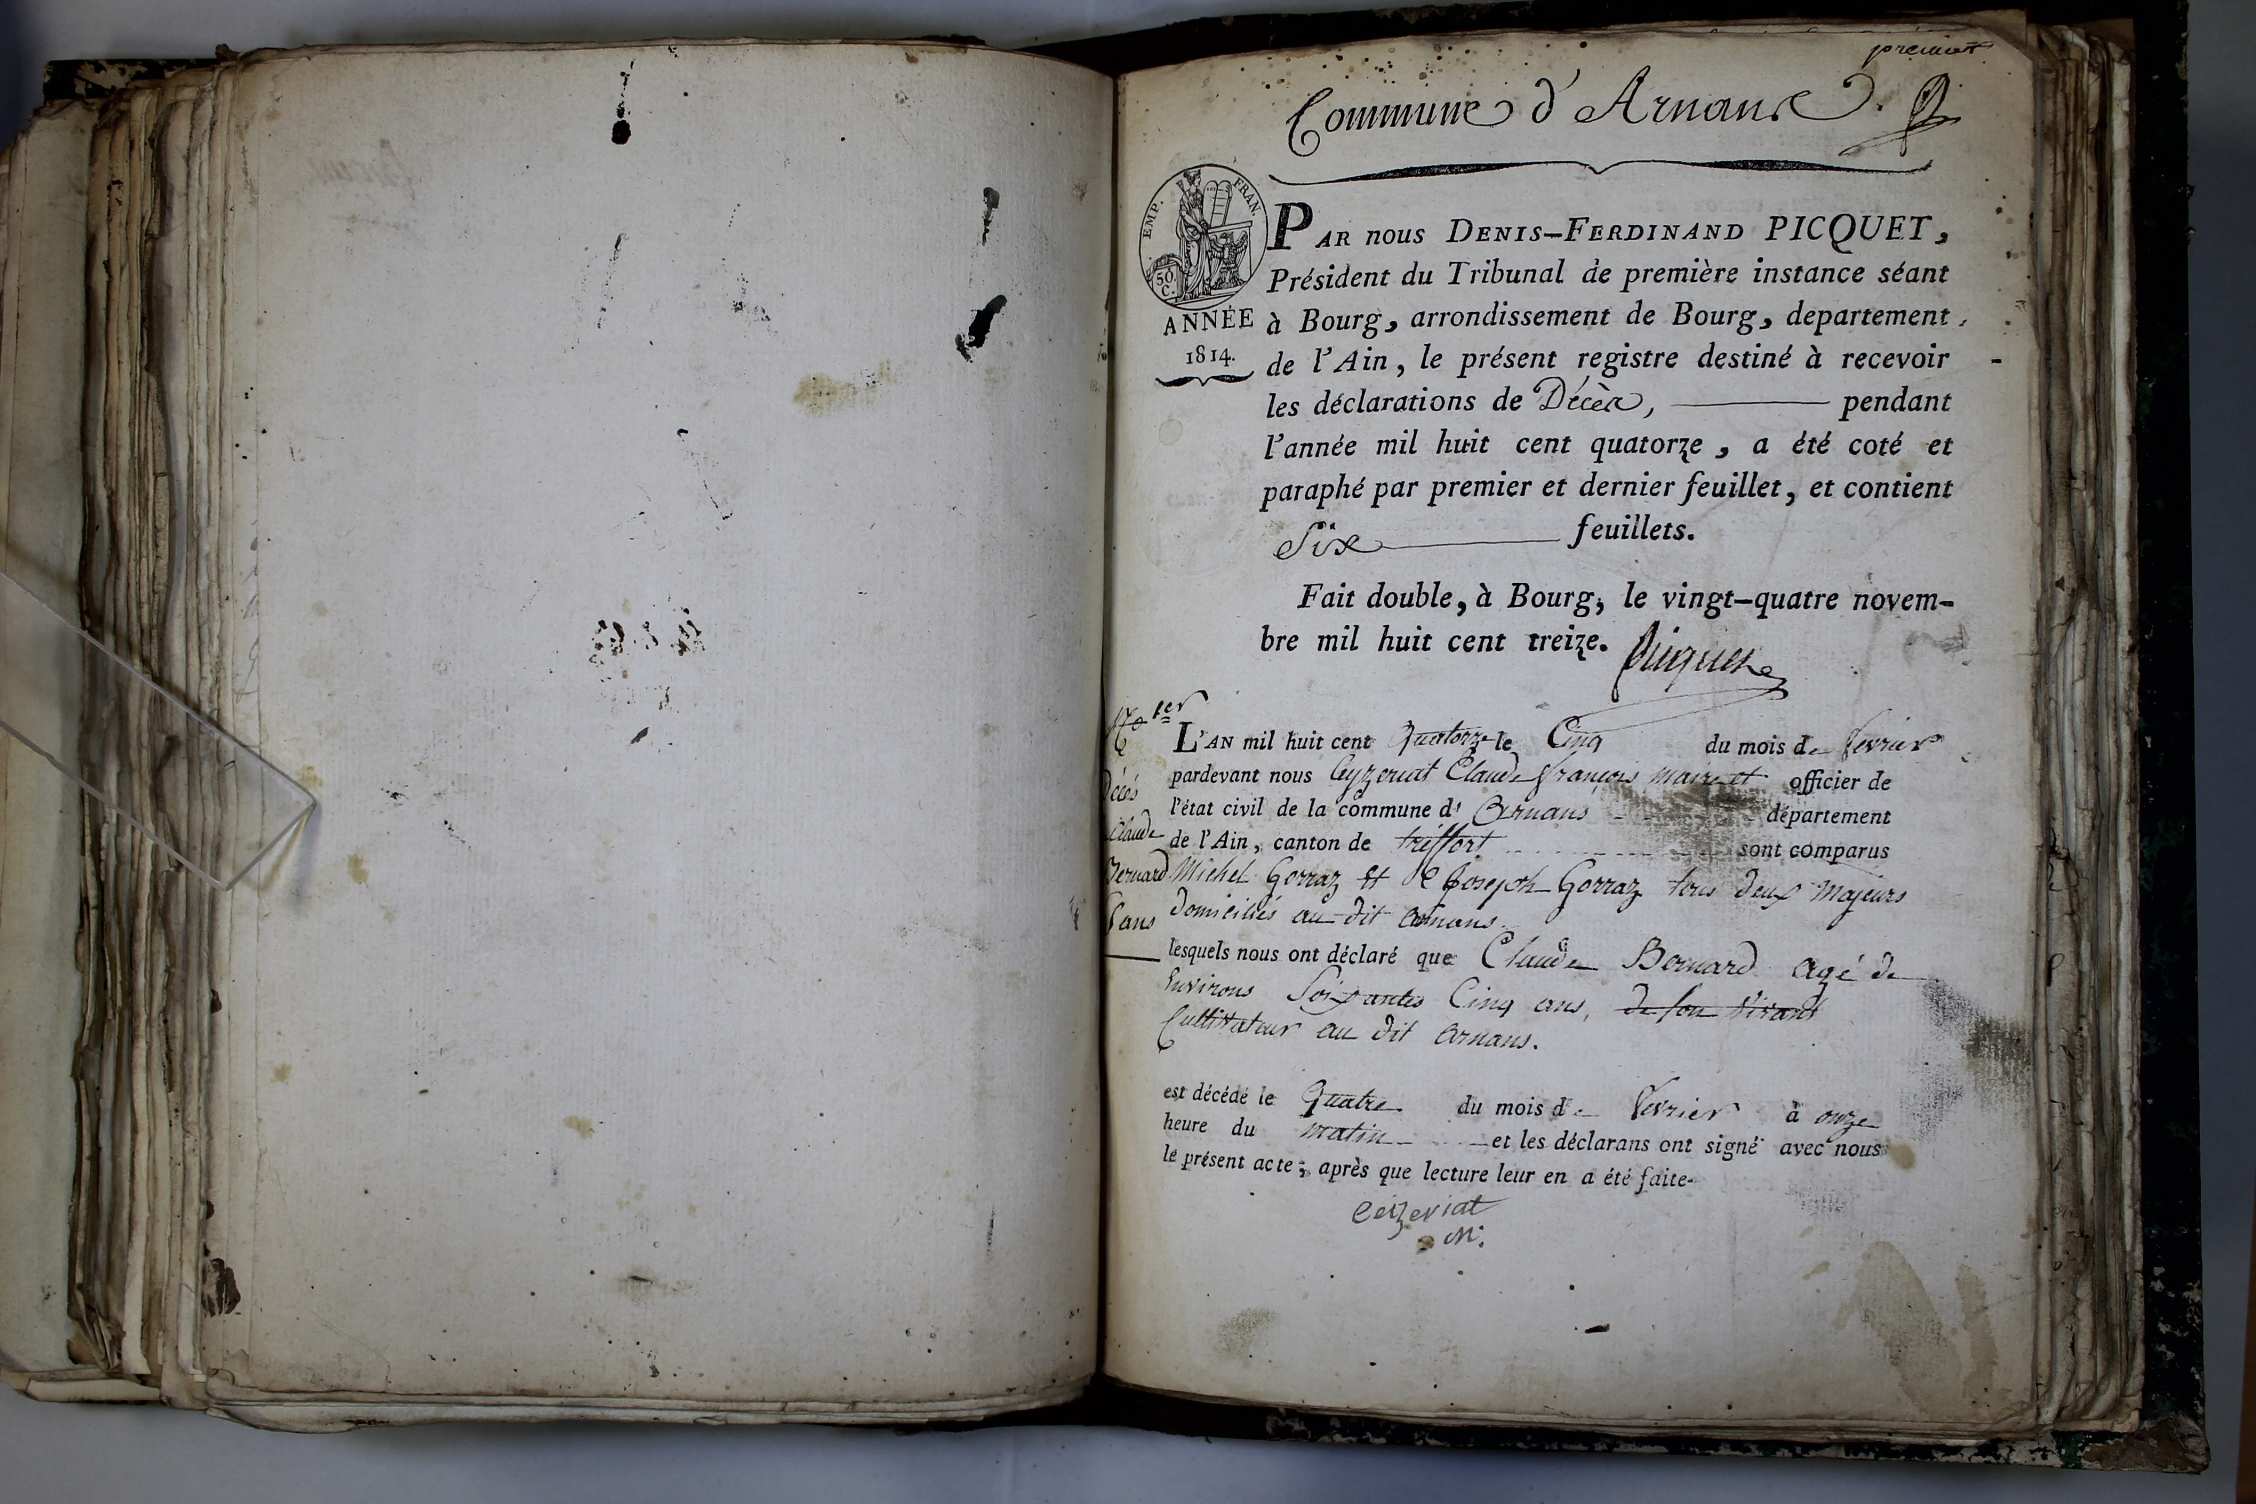 premier
Commune d'Arnans
EMP. FRAN.
50 C.
ANNÉE
1814.
PAR nous DENIS-FERDINAND PICQUET,
Président du Tribunal de première instance séant
à Bourg, arrondissement de Bourg, departement
de l'Ain, le présent registre destiné à recevoir
les déclarations de Décès, pendant
l'année mil huit cent quatorze, a été coté et
paraphé par premier et dernier feuillet, et contient
Six feuillets.
Fait double, à Bourg, le vingt-quatre novem-
bre mil huit cent treize. Picquet
No 1er
Décès
Claude
Bernard
ans
L'AN mil huit cent Quatorze le Cinq du mois de fevrier
pardevant nous Ceyzeriat Claude françois maire et officier de
l'état civil de la commune d' Arnans département
de l'Ain, canton de treffort sont comparus
Michel Gorraz et Joseph Gorraz tous deux majeurs
domiciliés au dit arnans
lesquels nous ont déclaré que Claude Bernard agé de
Environs Soixantes Cinq ans, de son vivant
Cultivateur au dit arnans.
est décédé le Quatre du mois de fevrier à onze
heure du matin et les déclarans ont signé avec nous
le présent acte, après que lecture leur en a été faite.
Ceizeriat
M.